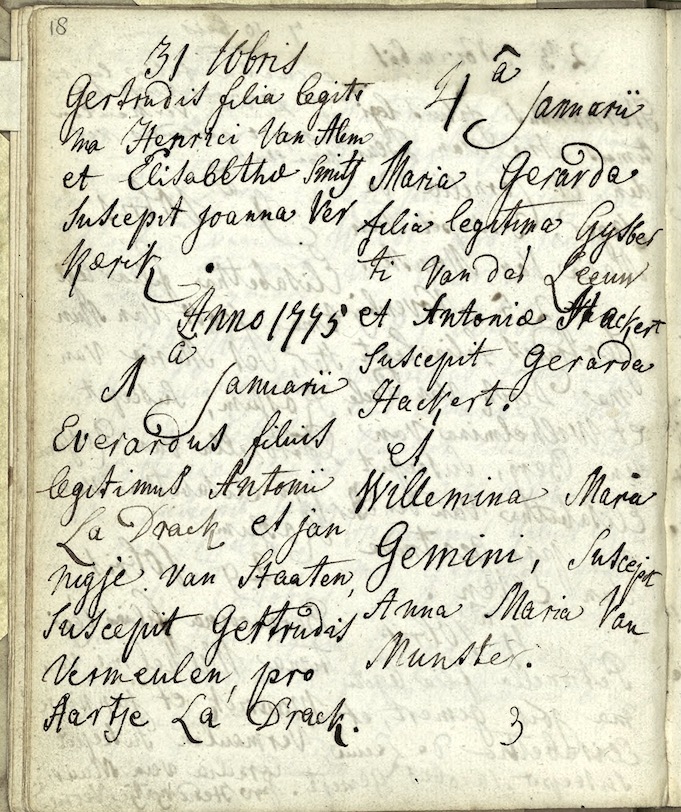 18
31 10bris
Gertrudis filia legiti
ma Henrici Van Alem
et Elisabetha Smits
suscepit joanna Ver
Kærik.
Anno 1775
1 a Januarii
Everardus filius
legitimus Antonii
La Drack et jan
nigje Van Staaten,
suscepit Gertrudis
Vermeulen, pro
Aartje La Drack.
4 a Januarii
Maria Gerarda
filia legitima Gysber
ti Van der Leeuw
et Antoniæ Hackert
suscepit Gerarda
Hackert.
et
Willemina Maria
Gemini, suscepit
Anna Maria Van
Munster.
3